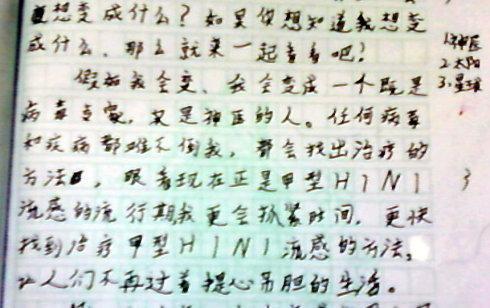 想变成什么？如果你想知道我想变
成什么，那么就来一起看看吧！
假如我会变，我会变成一个既是
病毒专家，又是神医的人。任何病毒
和疾病都难不倒我，都会找出治疗的
方法，眼看现在正是甲型H1N1
流感的流行期我更会抓紧时间，更快
找到治疗甲型H1N1流感的方法，
让人们不再过着提心吊胆的生活。
1.神医
2.太阳
3.星球